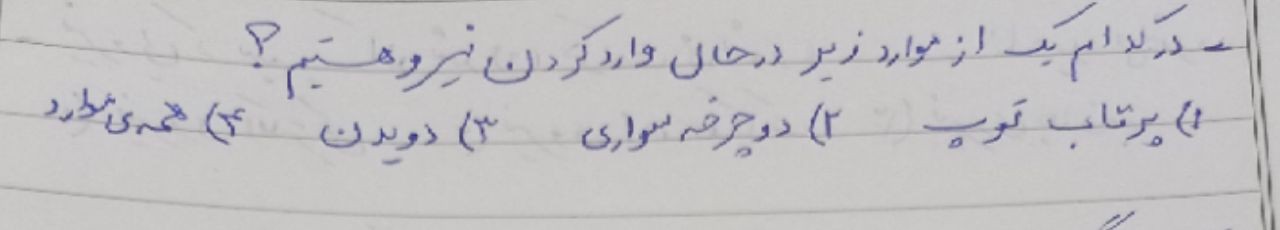 - در کدام یک از موارد زیر درحال وارد کردن نیرو هستیم؟
۱) پرتاب توپ ۲) دوچرخه سواری ۳) دویدن ۴) همه‌ی موارد